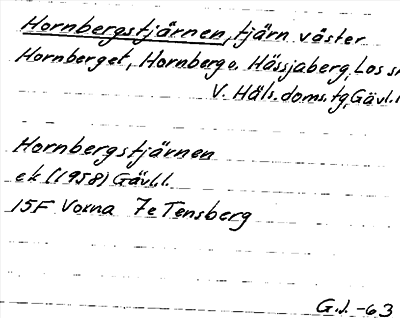 Hornbergstjärnen, tjärn väster
Hornberget, Hornberga, Hässjaberg, Los sn
V. Häls. doms. tg, Gävl. l
Hornbergstjärnen
ek (1958) Gävl.l.
15F Voxna 7e Tensberg
G.J. -63